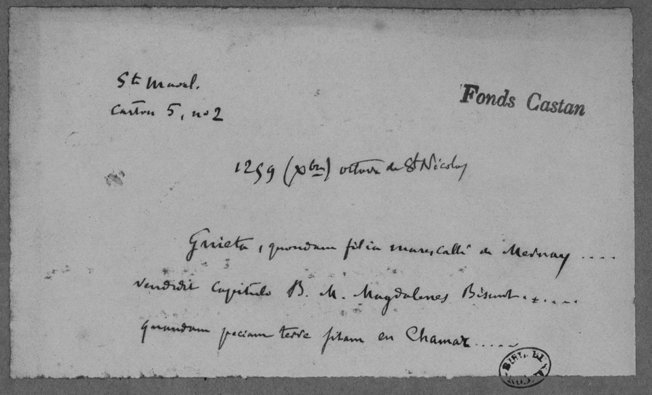 Ste Magd.
Carton 5, no 2
Fonds Castan
1259 (Xbre) octave de St Nicolas
Guieta, quondam filia marescalli de Mesnay ....
vendidit capitulo B. M. Magdalenes Bisunt......
quandam peciam terre sitam en Chamar.....